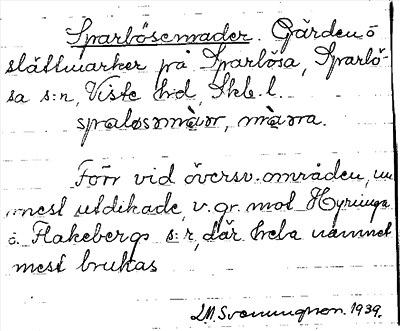 Sparlösemader. Gärden ö
slåttmarker på Sparlösa, Sparlö-
sa s:n, Viste hd, Skb. l.
Förr vid översv. områden, nu
mest utdikade, v. gr. mot Hyringa
o. Flakebergs s:r, där hela namnet
mest brukas
L.M. Svenungsson. 1939.